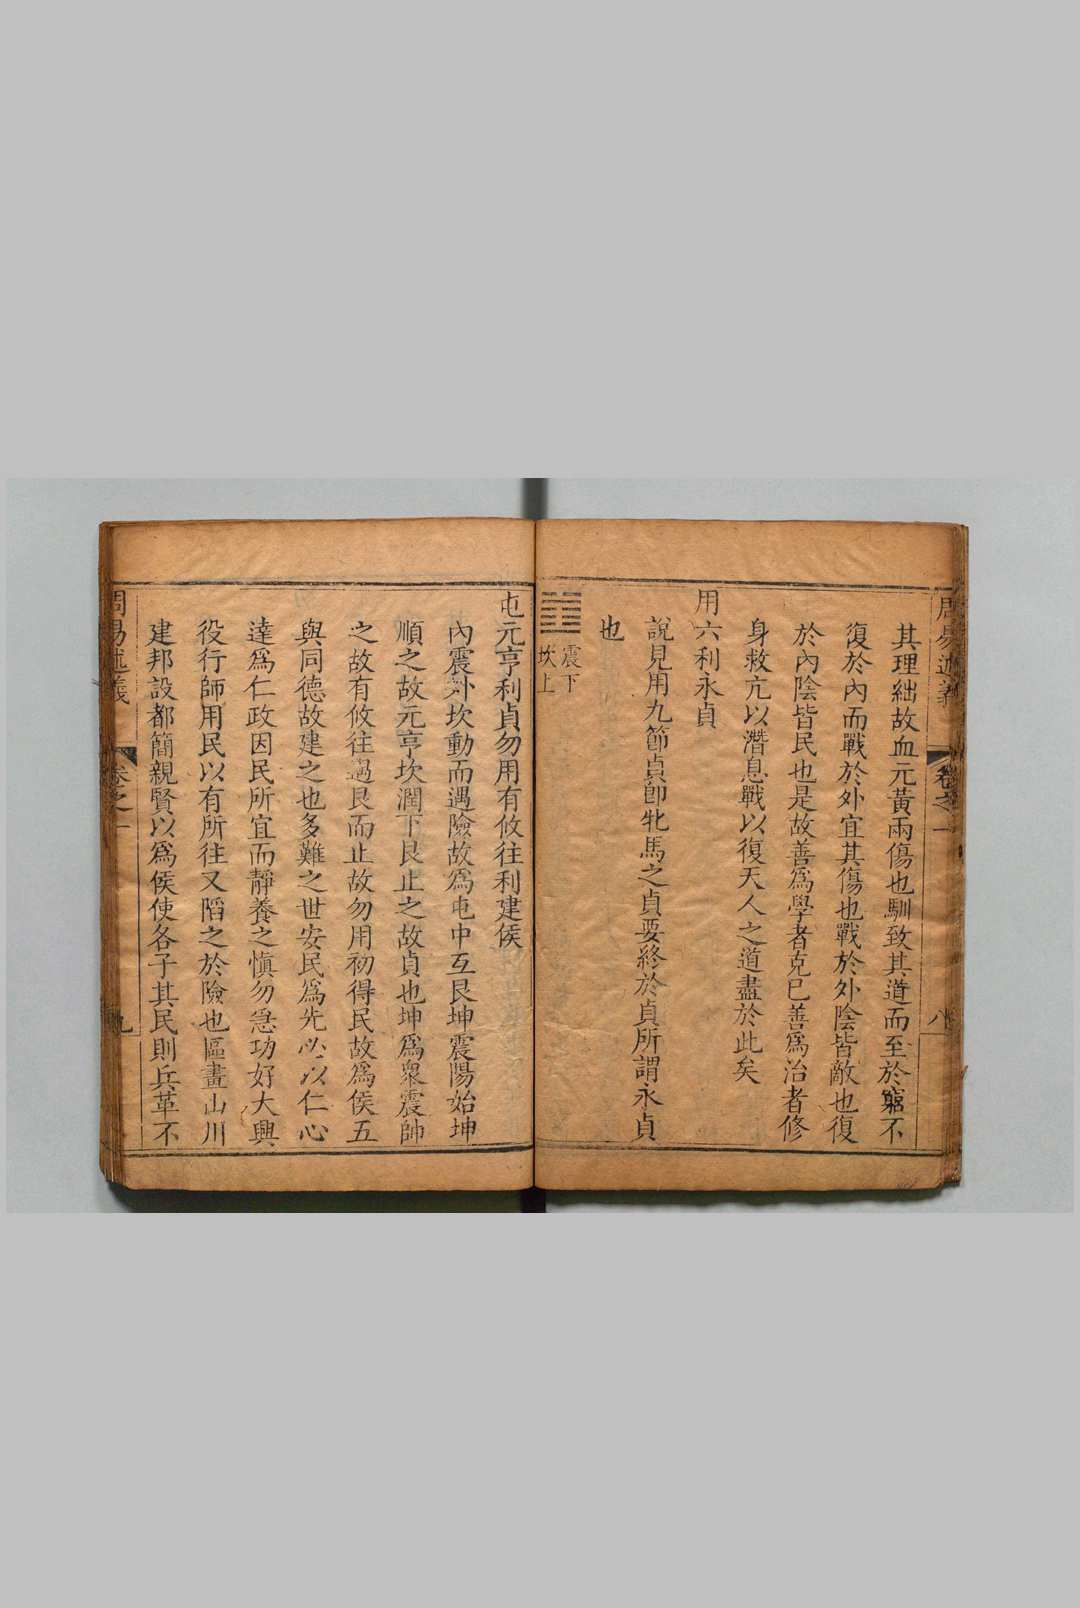 周易述義 卷之一 八
其理絀故血元黃兩傷也馴致其道而至於窮不
復於內而戰於外宜其傷也戰於外陰皆敵也復
於內陰皆民也是故善爲學者克已善爲治者修
身救亢以潛息戰以復天人之道盡於此矣
用六利永貞
說見用九節貞卽牝馬之貞要終於貞所謂永貞
也
震下
坎上
屯元亨利貞勿用有攸往利建侯
內震外坎動而遇險故爲屯中互艮坤震陽始坤
順之故元亨坎潤下艮止之故貞也坤爲衆震帥
之故有攸往遇艮而止故勿用初得民故爲侯五
與同德故建之也多難之世安民爲先必以仁心
達爲仁政因民所宜而靜養之愼勿急功好大興
役行師用民以有所往又陷之於險也區畫山川
建邦設都簡親賢以爲侯使各子其民則兵革不
周易述義 卷之一 九